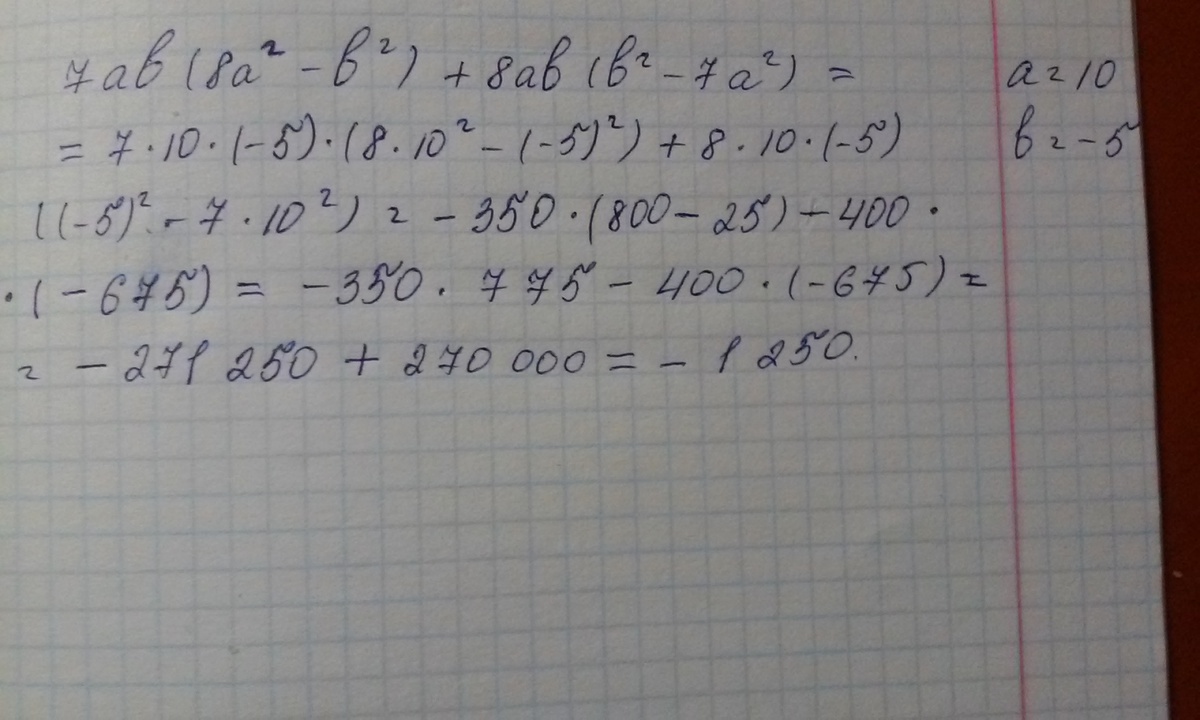 7ab (8a² - b²) + 8ab (b² - 7a²) = a = 10
= 7 · 10 · (-5) · (8 · 10² - (-5)²) + 8 · 10 · (-5) b = -5
((-5)² - 7 · 10²) = - 350 · (800 - 25) - 400 ·
· (- 675) = - 350 · 775 - 400 · (-675) =
= - 271 250 + 270 000 = - 1 250.